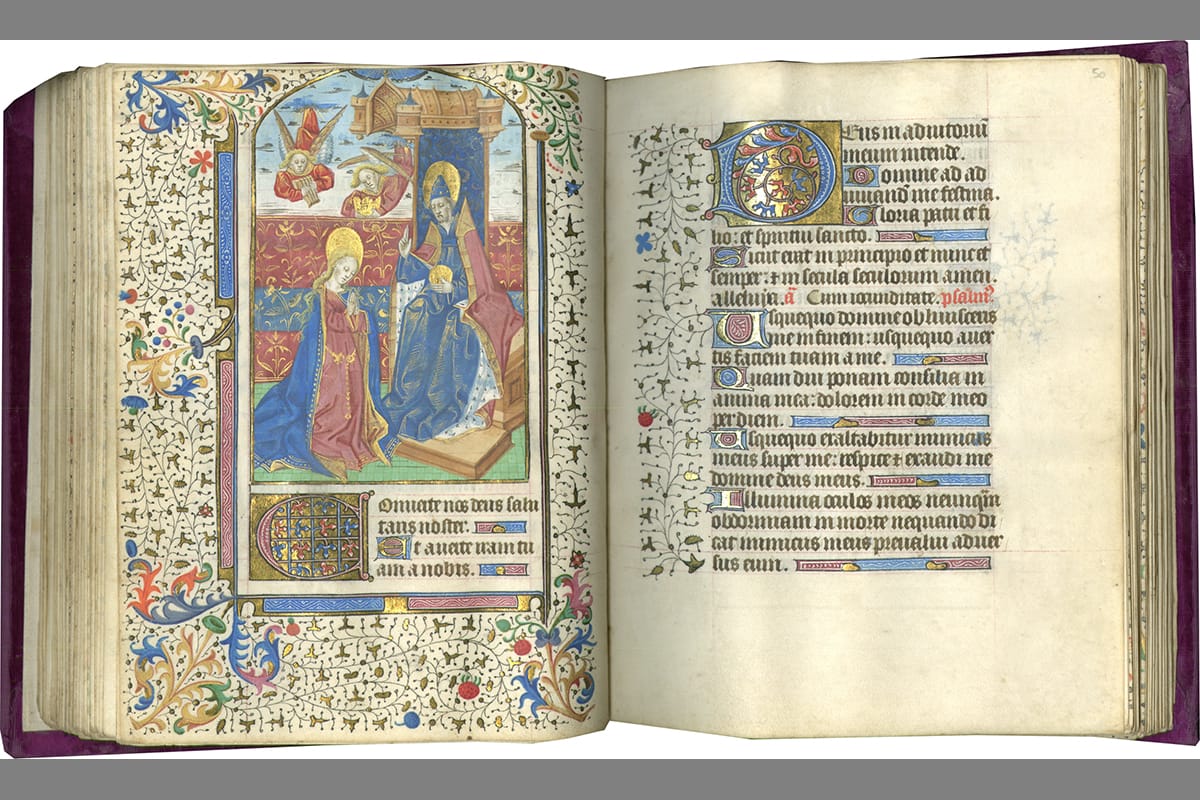 Conuerte nos deus salu
taris noster.
Et auerte iram tu
am a nobis.
50
Deus in adiutoriū
meum intende.
Domine ad ad
iuuandū me festina.
Gloria patri et fi
lio: et spiritui sancto.
Sicut erat in principio et nunc et
semper: ⁊ in secula seculorum amen
alleluja. ā Cum iocunditate. psalmꝰ.
Usquequo domine obliuisceris
me in finem: usquequo auer
tis faciem tuam a me.
Quam diu ponam consilia in
anima mea: dolorem in corde meo
per diem.
Usquequo exaltabitur inimicus
meus super me: respice ⁊ exaudi me
domine deus meus.
Illumina oculos meos ne unq̄m
obdormiam in morte nequando di
cat inimicus meus preualui aduer
sus eum.